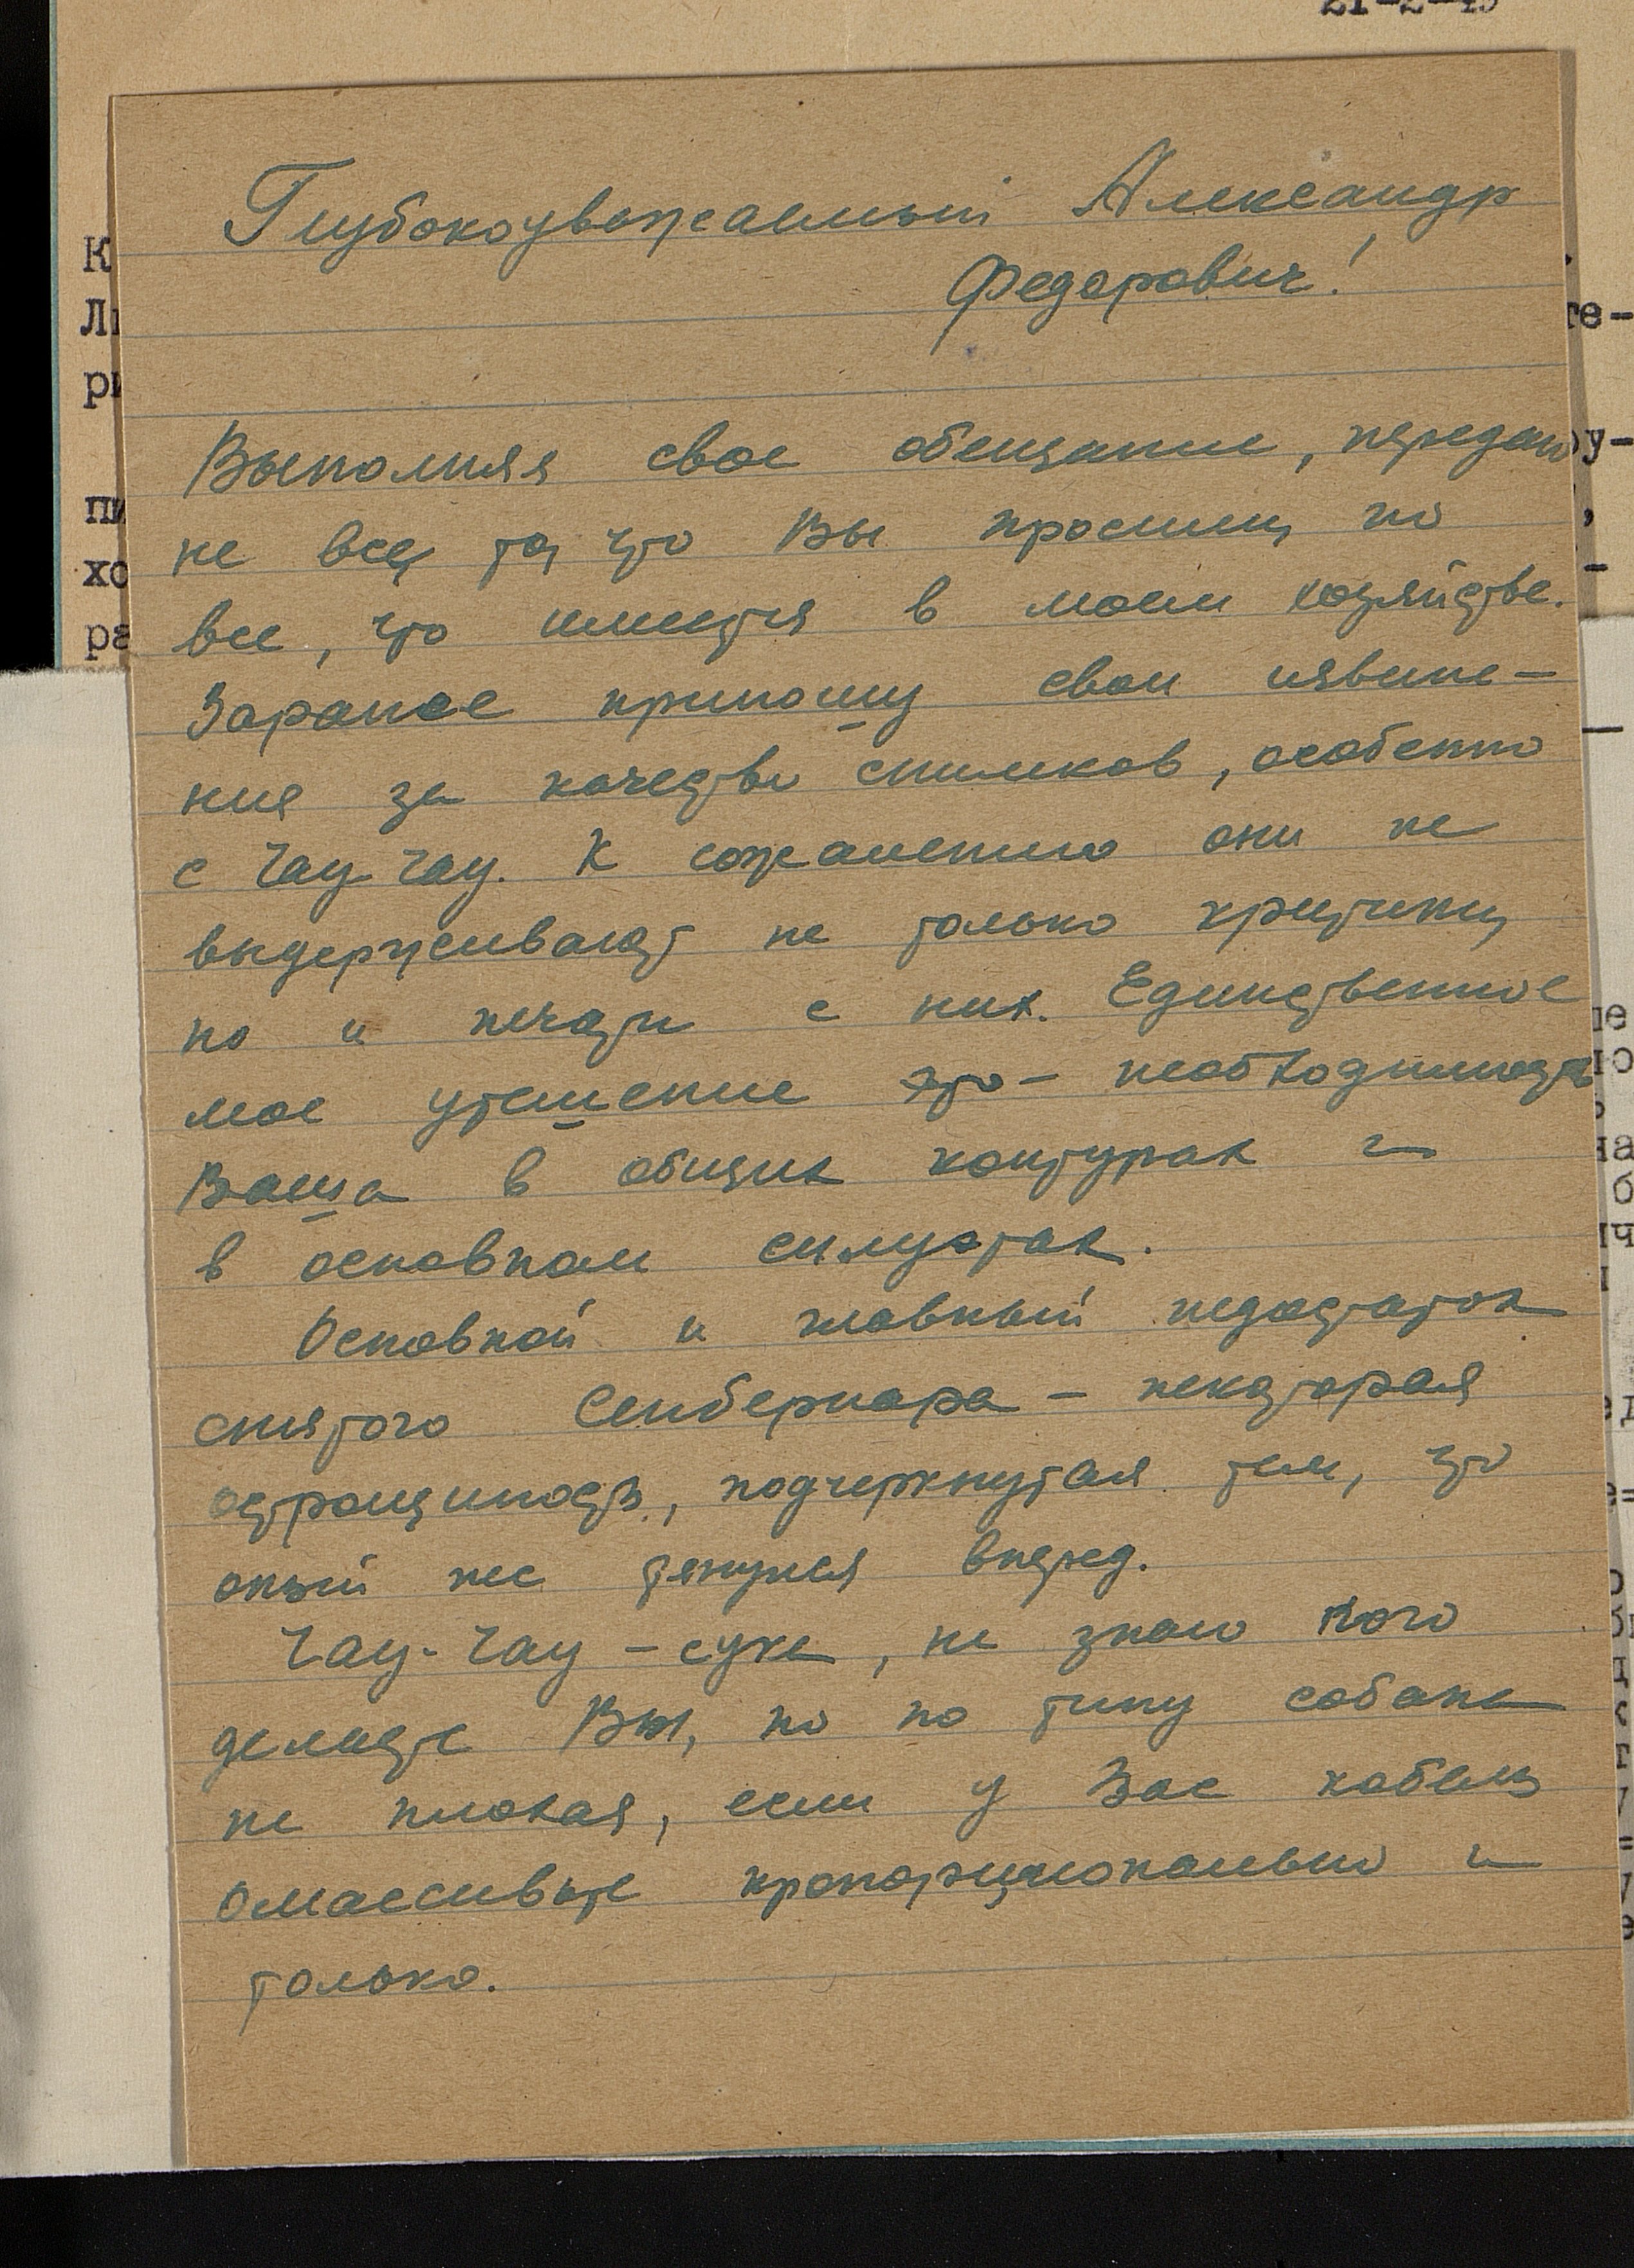 21-2-49
Глубокоуважаемый Александр
Федорович!
Выполняя свое обещание, передаю
не все то, что Вы просили, но
все, что имеется в моем хозяйстве.
Заранее приношу свои извине-
ния за качество снимков, особенно
с Чау-Чау. К сожалению они не
выдерживают не только критики
но и печати с них. Единственное
мое утешение это - необходимость
Ваша в общих контурах и
в основном силуэтах.
Основной и главный недостаток
снятого Сенбернара - некоторая
остращность, подчеркнутая тем, что
оный пес тянулся вперед.
Чау-Чау - сука, не знаю кого
делаете Вы, но по типу собака
не плохая, если у Вас кобель
омассивьте пропорционально и
только.